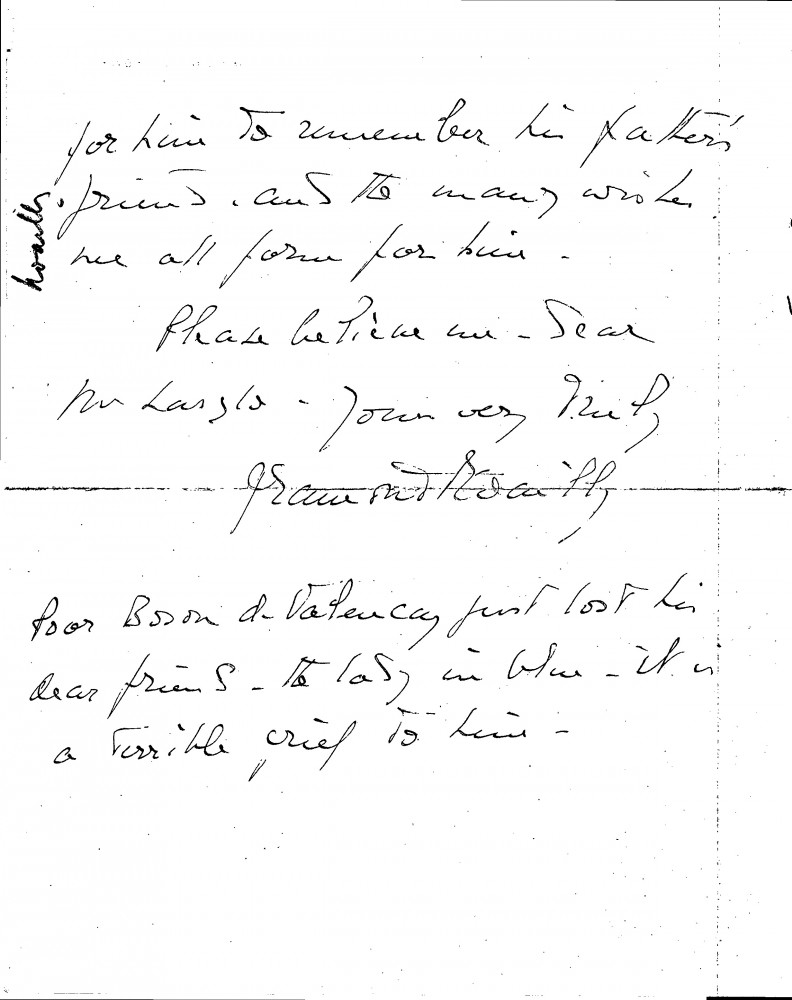 for him to remember his father's
friend. and the many wishes
we all form for him -
Please believe me - dear
Mr Laszlo - Yours very truly
Gramont Noailly
Poor Boson de Valencay just lost his
dear friend - the lady in blue - it is
a terrible grief to him -
Noailly